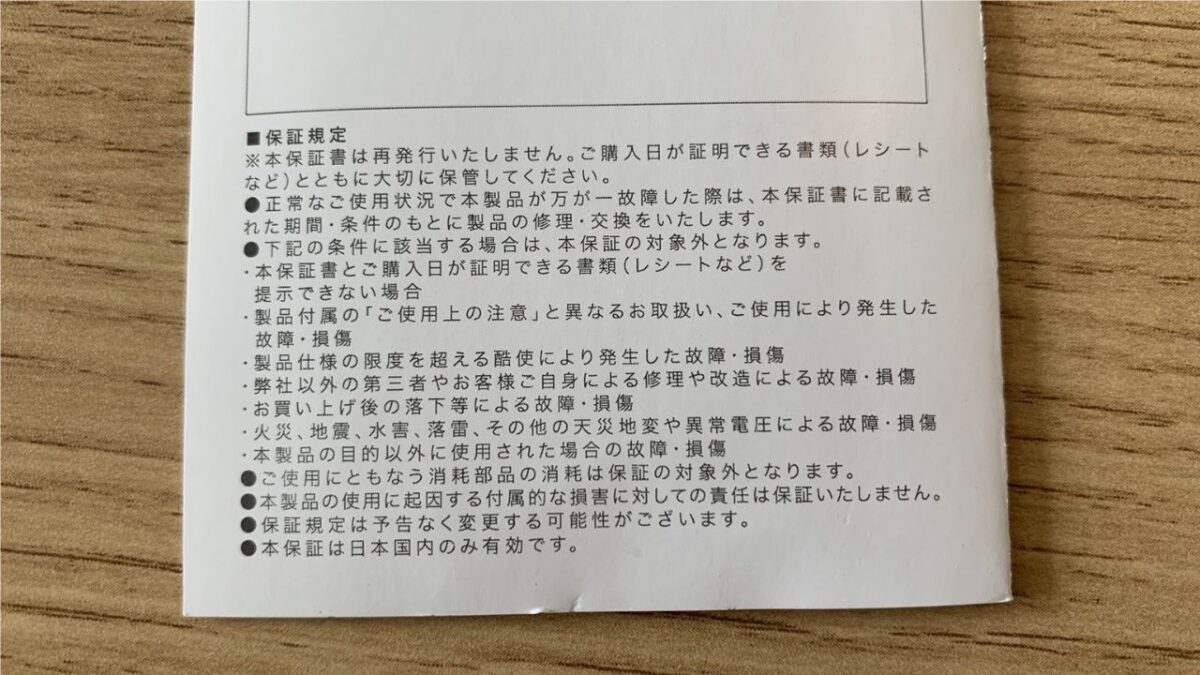 ■保証規定
※本保証書は再発行いたしません。ご購入日が証明できる書類(レシート
など)とともに大切に保管してください。
●正常なご使用状況で本製品が万が一故障した際は、本保証書に記載さ
れた期間・条件のもとに製品の修理・交換をいたします。
●下記の条件に該当する場合は、本保証の対象外となります。
・本保証書とご購入日が証明できる書類(レシートなど)を
提示できない場合
・製品付属の「ご使用上の注意」と異なるお取扱い、ご使用により発生した
故障・損傷
・製品仕様の限度を超える酷使により発生した故障・損傷
・弊社以外の第三者やお客様ご自身による修理や改造による故障・損傷
・お買い上げ後の落下等による故障・損傷
・火災、地震、水害、落雷、その他の天災地変や異常電圧による故障・損傷
・本製品の目的以外に使用された場合の故障・損傷
●ご使用にともなう消耗部品の消耗は保証の対象外となります。
●本製品の使用に起因する付属的な損害に対しての責任は保証いたしません。
●保証規定は予告なく変更する可能性がございます。
●本保証は日本国内のみ有効です。